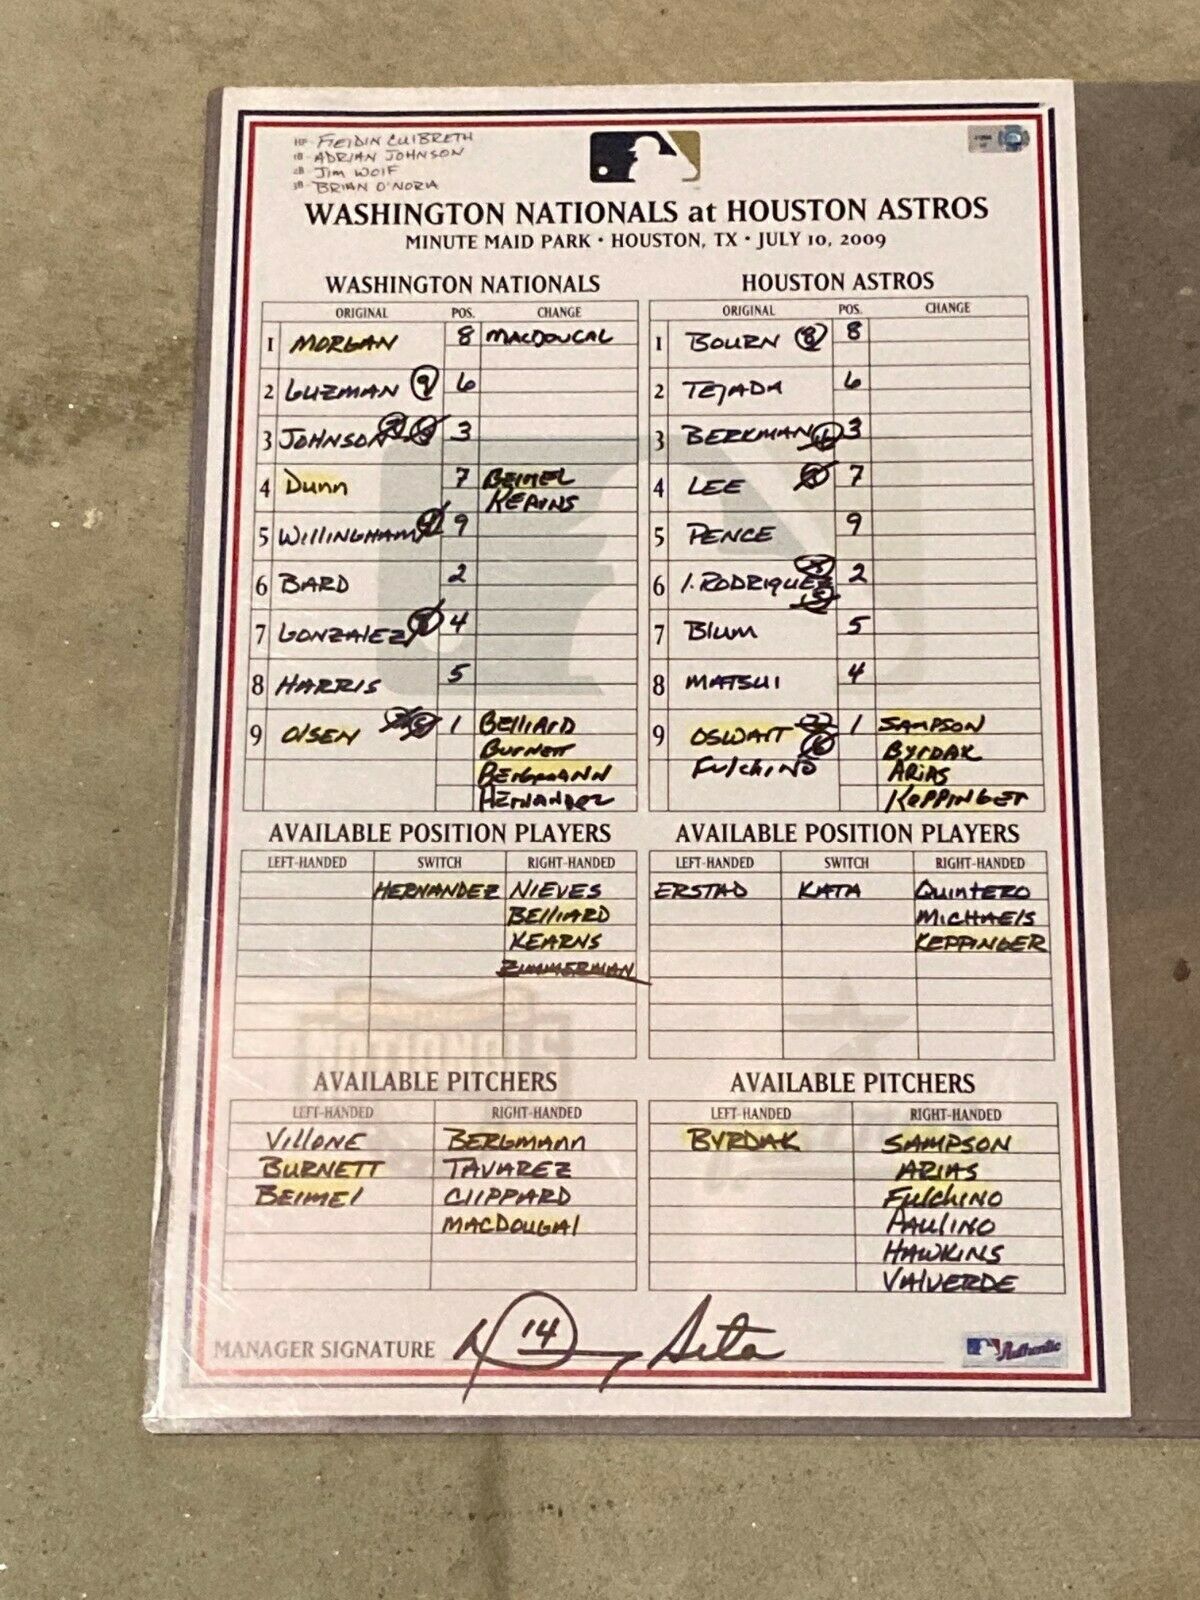 HP- FIELDIN CUlBRETH
1B- ADRIAN JOHNSON
2B- Jim WOlF
3B- BRIAN O'NORA
WASHINGTON NATIONALS at HOUSTON ASTROS
MINUTE MAID PARK • HOUSTON, TX • JULY 10, 2009
WASHINGTON NATIONALS
ORIGINAL POS. CHANGE
1 MORGAN 8 MACDOUGAL
2 GUZMAN 9 6
3 JOHNSON 3
4 Dunn 7 BEIMEL
KEARNS
5 WIllINGHAM 9
6 BARD 2
7 GONZAlEZ 4
8 HARRIS 5
9 OlSEN 1 BEllIARD
BURNETT
BERGMANN
HERNANDEZ
HOUSTON ASTROS
ORIGINAL POS. CHANGE
1 BOURN 8 8
2 TEJADA 6
3 BERKMAN 3
4 LEE 7
5 PENCE 9
6 I. RODRIQUEZ 2
7 Blum 5
8 MATSUI 4
9 OSWAlT 1 SAMPSON
FulchINO BYRDAK
ARIAS
KEPPINGER
AVAILABLE POSITION PLAYERS
LEFT-HANDED SWITCH RIGHT-HANDED
HERNANDEZ NIEVES
BEllIARD
KEARNS
ZIMMERMAN
AVAILABLE POSITION PLAYERS
LEFT-HANDED SWITCH RIGHT-HANDED
ERSTAD KATA QuINTERO
MICHAElS
KEPPINGER
AVAILABLE PITCHERS
LEFT-HANDED RIGHT-HANDED
VIllONE BERGMANN
BURNETT TAVAREZ
BEIMEl ClIPPARD
MACDOUGAl
AVAILABLE PITCHERS
LEFT-HANDED RIGHT-HANDED
BYRDAK SAMPSON
ARIAS
FulchINO
PAulINO
HAWKINS
VAlVERDE
MANAGER SIGNATURE 14
Authentic